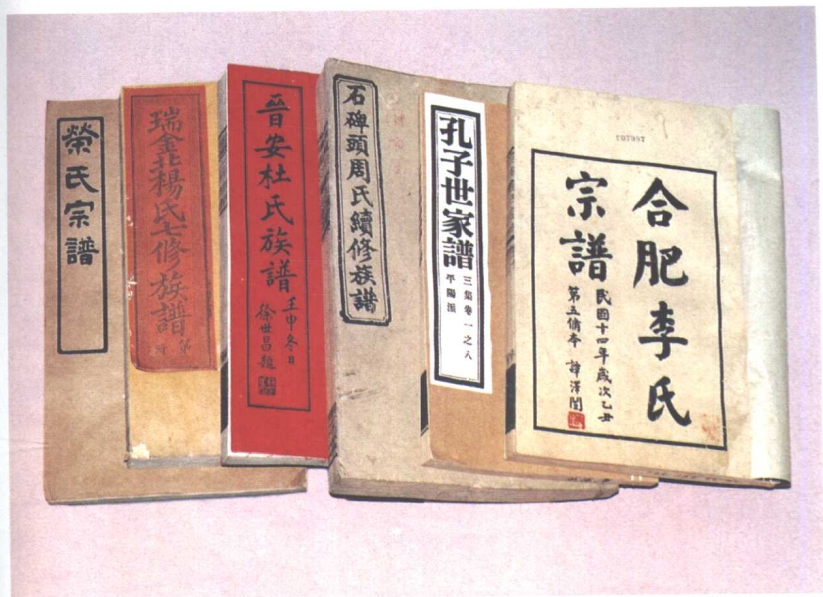 榮氏宗譜
瑞金北楊氏七修族譜
第
晉安杜氏族譜
壬申冬日
徐世昌題
石碑頭周氏續修族譜
孔子世家譜
三集卷一之八
平陽派
合肥李氏
宗譜
民國十四年歲次乙丑
第五脩本 譚澤闓